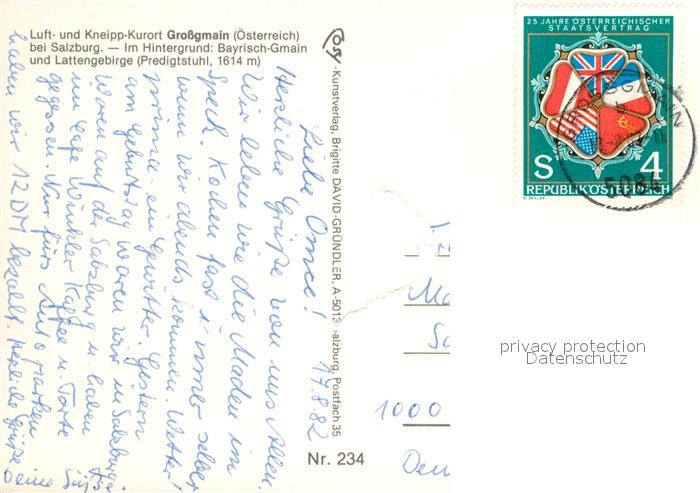 Luft- und Kneipp-Kurort Großgmain (Österreich)
bei Salzburg. — Im Hintergrund: Bayrisch-Gmain
und Lattengebirge (Predigtstuhl, 1614 m)
Cosy-Kunstverlag, Brigitte DAVID-GRÜNDLER, A-5013 Salzburg, Postfach 35
Nr. 234
17.8.82
Liebe Omce!
Herzliche Grüße von uns Allen.
Wir leben wie die Maden im
Speck. Kochen fast immer selber
wenn wir abends kommen. Wetter
prima - ein Gewitter. Gestern
am Geburtstag waren wir in Salzburg.
Waren auf der Salzburg u. haben
im Cafe Winkler Kaffee u. Torte
gegessen. Nur fürs Auto parken
haben wir 12 DM bezahlt. Herzliche Grüße
Deine
25 JAHRE ÖSTERREICHISCHER
STAATSVERTRAG
S 4
REPUBLIK ÖSTERREICH
O. ZEILLER
GROSSGMAIN
5084
1000
privacy protection
Datenschutz